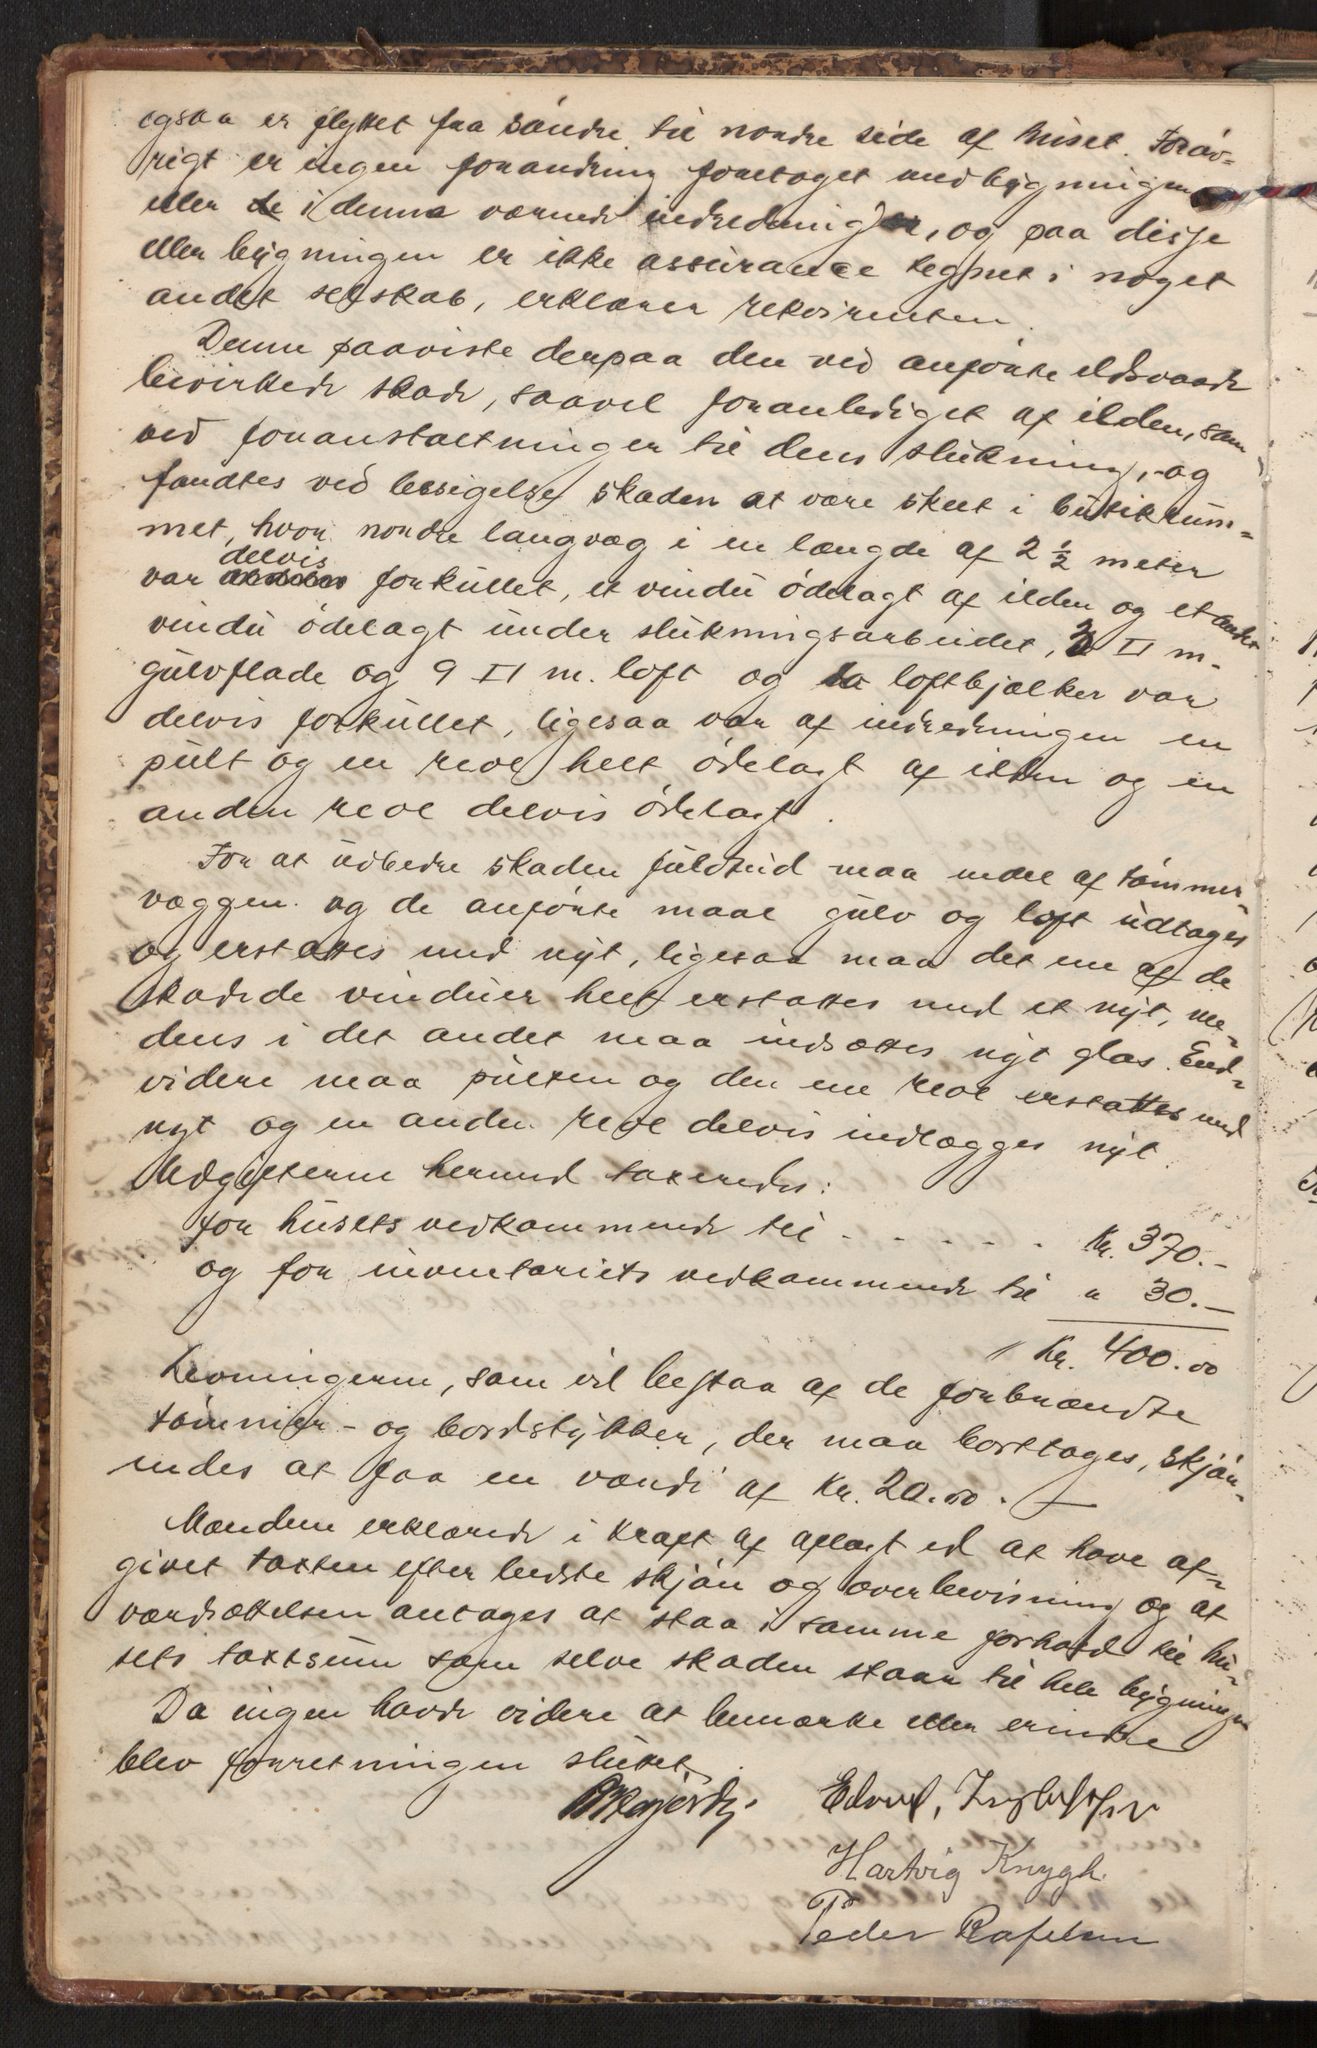 ogsaa er flyttet fra søndre til nordre side af huset. Forøv-
rigt er ingen forandring foretaget med bygningen
eller de i denne værende indredninger, og paa disse
eller bygningen er ikke assurance tegnet i noget
andet selskab, erklærer rekvirenten.
Denne paaviste derpaa den ved anførte ildsvaade
bevirkede skade, saavel foranlediget af ilden, som
ved foranstaltninger til dens slukning, og
fandtes ved besigelse skaden at være skeet i butikrum-
met, hvor nordre langvæg i en længde af 2 ½ meter
delvis
var forkullet, et vindu ødelagt af ilden og et andet
vindu ødelagt under slukningsarbeidet, 2 □ m.
gulvflade og 9 □ m. loft og to loftbjælker var
delvis forkullet, ligesaa var af indredningen en
pult og en reol helt ødelagt af ilden og en
anden reol delvis ødelagt.
For at udbedre skaden fuldtud maa endel af tømmer-
væggen og de anførte maal gulv og loft udtages
og erstattes med nyt, ligesaa maa det ene af de
skadede vinduer helt erstattes med et nyt, me-
dens i det andet maa indsættes nyt glas. End-
videre maa pulten og den ene reol erstattes med
nyt og en anden reol delvis indlægges nyt.
Udgifterne hermed taxeredes:
for husets vedkommende til - - - - - Kr. 370.-
og for inventariets vedkommende til " 30.-
Kr. 400.00
Levningerne, som vil bestaa af de forbrændte
tømmer- og bordstykker, der maa borttages, skjøn-
nedes at faa en værdi af Kr. 20.00. -
Mændene erklærede i kraft af aflagt ed at have af-
givet taxten efter bedste skjøn og overbevisning og at
værdsættelsen antages at staa i samme forhold til hu-
sets taxtsum som selve skaden staar til hele bygningen
Da ingen havde videre at bemærke eller erindre
blev forretningen sluttet.
Edvard,
Hartvig Knygh.
Peder Rafelsen